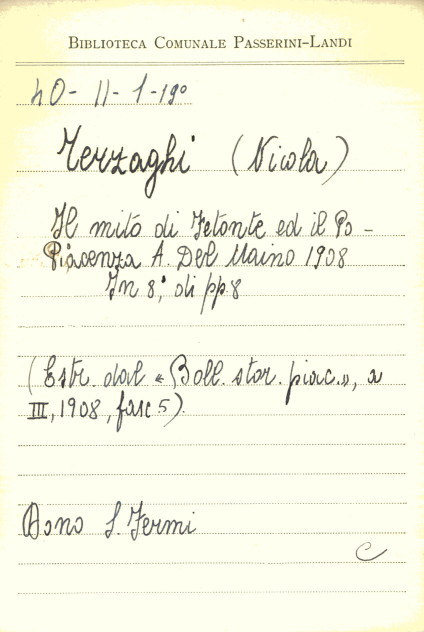 BIBLIOTECA COMUNALE PASSERINI-LANDI
40-11-1-19º
Terzaghi (Nicola)
Il mito di Fetonte ed il Po -
Piacenza A. Del Maino 1908
In 8º, di pp. 8
(Estr. dal « Boll. stor. piac.», a
III, 1908, fasc 5).
Dono S. Fermi
C